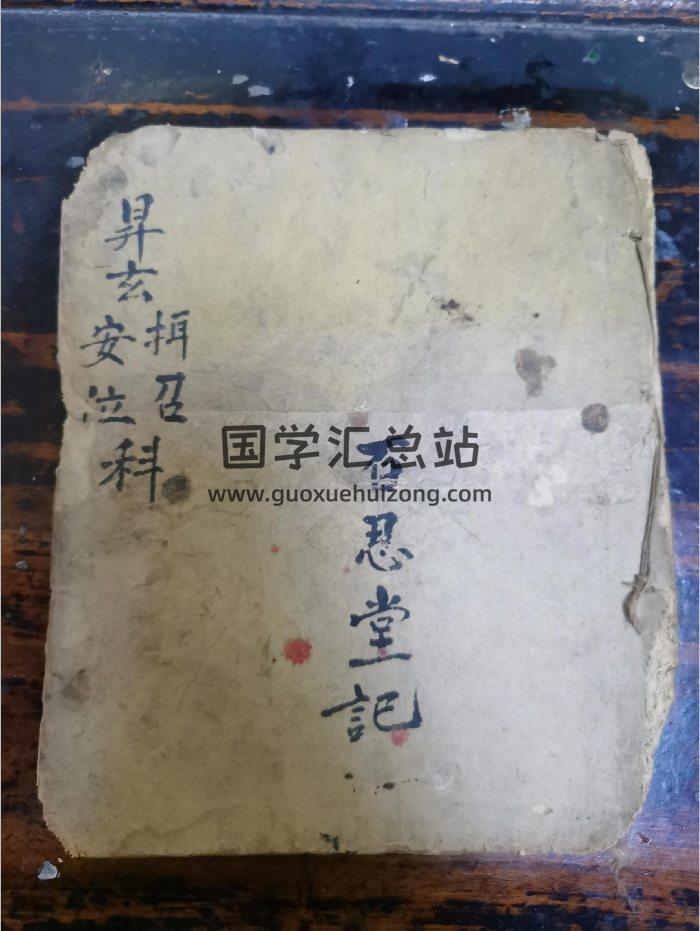 百忍堂記
昇玄
揖召
安位
科
国学汇总站
www.guoxuehuizong.com